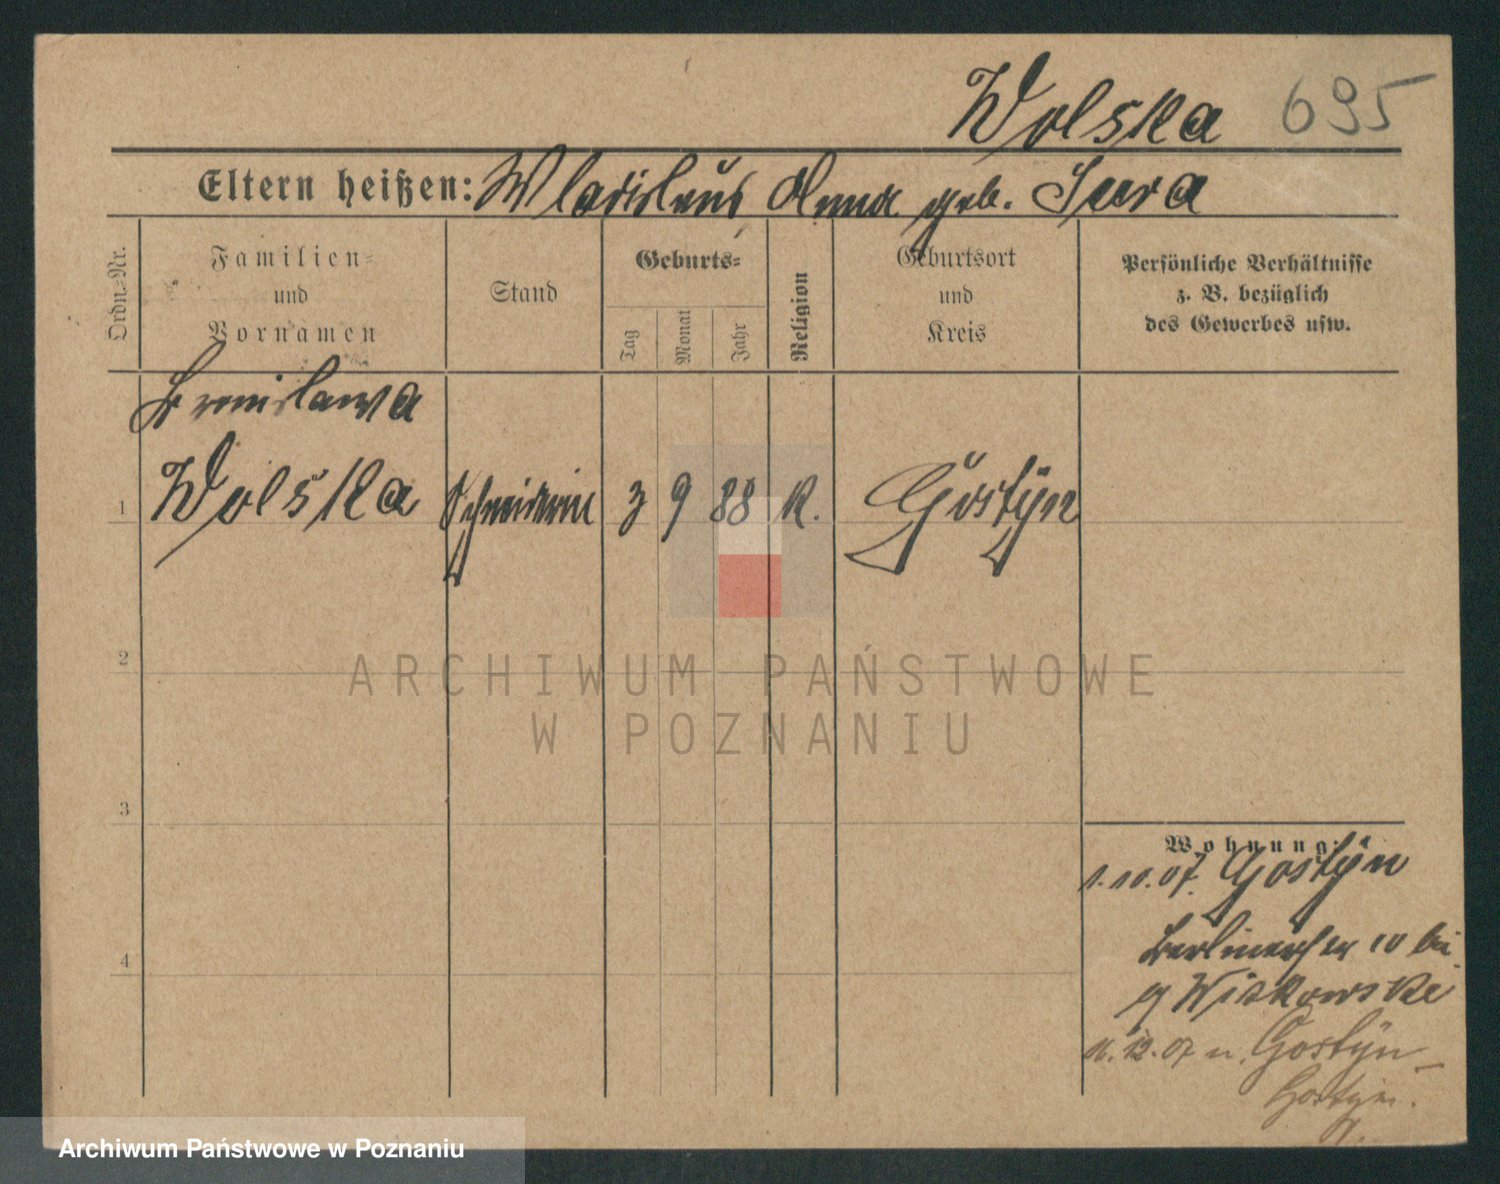 Wolska 695
Eltern heißen: Wladislaus Anna geb. Jura
Ordn.-Nr.
Familien-
und
Vornamen
Stand
Geburts-
Tag
Monat
Jahr
Religion
Geburtsort
und
Kreis
Persönliche Verhältnisse
z. B. bezüglich
des Gewerbes usw.
Bronislawa
1 Wolska Schneiderin 3 9 88 K. Gostÿn
2
ARCHIWUM PAŃSTWOWE
W POZNANIU
3
4
Wohnung:
1.10.07. Gostÿn
10 bei
Wiskowski
12.07 n. Gostÿn
Gostyn.
Archiwum Państwowe w Poznaniu